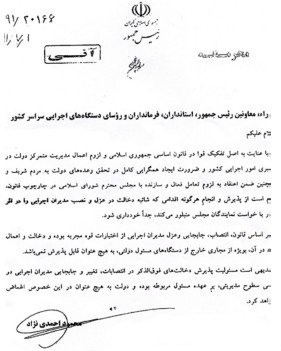 جمهوری اسلامی ایران
رئیس جمهور
۹۱/۲۰۱۶۶
آنی
راء، معاونین رئیس جمهور، استانداران، فرمانداران و رؤسای دستگاه‌های اجرایی سراسر کشور
لام علیکم
با عنایت به اصل تفکیک قوا در قانون اساسی جمهوری اسلامی و لزوم اعمال مدیریت متمرکز دولت در
امور اجرایی کشور و ضرورت ایجاد همگرایی کامل در تحقق وعده‌های دولت به مردم شریف و
ضمن اعتقاد به لزوم تعامل فعال و سازنده با مجلس محترم شورای اسلامی در چارچوب قانون،
است از پذیرش و انجام هرگونه اقدامی که شائبه دخالت در عزل و نصب مدیران اجرایی و در
با خواست نمایندگان مجلس متبلور می‌کند، جداً خودداری شود.
بر اساس قانون، انتصاب، جابجایی و عزل مدیران اجرایی از اختیارات قوه مجریه بوده و دخالت و اعمال
در آن، بویژه از مجاری خارج از دستگاه‌های مسئول دولتی، به هیچ عنوان قابل پذیرش نمی‌باشد.
بدیهی است مسئولیت پذیرش دخالت‌های فوق‌الذکر در انتصابات، تغییر و جابجایی مدیران اجرایی در
سطوح مدیریتی، بر عهده مسئول مربوطه بوده و دولت به هیچ عنوان در این خصوص اغماض
اهد کرد.
محمود احمدی نژاد